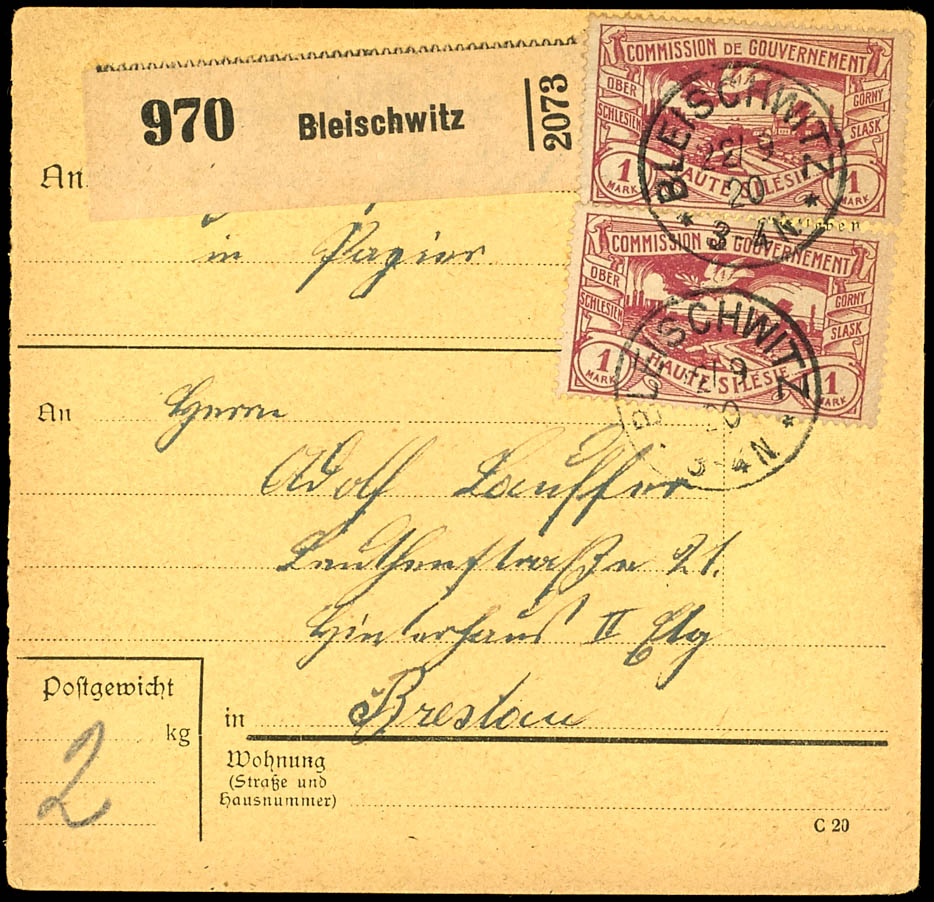 970 Bleischwitz 2073
COMMISSION DE GOUVERNEMENT
OBER SCHLESIEN
GORNY SLASK
1 MARK HAUTE SILESIE 1 MARK
BLEISCHWITZ
9
20
* 3-4N *
An
in Papier
COMMISSION DE GOUVERNEMENT
OBER SCHLESIEN
GORNY SLASK
1 MARK HAUTE SILESIE 1 MARK
BLEISCHWITZ
9
20
3-4N *
An Herrn
Adolf Lauffer
Leuthenstraße 21.
Hinterhaus II Etg
in Breslau
Postgewicht
2 kg
Wohnung
(Straße und
Hausnummer)
C 20